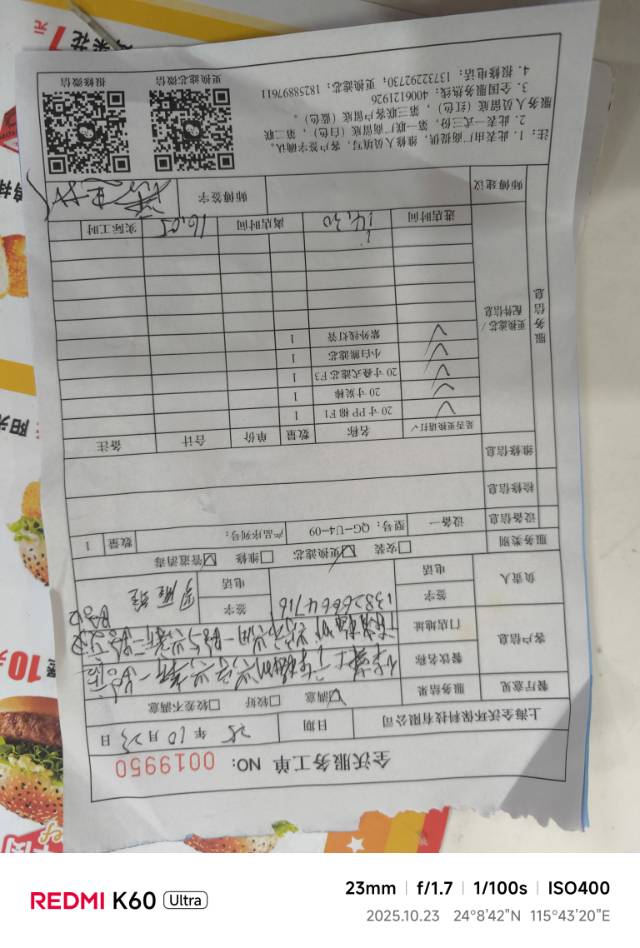 全沃服务工单 NO: 0019950
上海全沃环保科技有限公司 日期 25 年 10 月 23 日
餐厅意见 服务结果 ☑满意 □较好 □较差不满意
客户信息 餐饮名称
门店地址
负责人 签字 签字
电话 13826664716 电话
服务类别 □安装 ☑更换滤芯 □维修 ☑管道消毒
设备信息 设备一 型号: QG-U4-09 产品序列号: 数量 1
检修信息
维修信息
更换滤芯/配件信息 是否更换请打✓ 名称 数量 单价 合计 备注
✓ 20寸PP棉F1 1
✓ 20寸炭棒 1
✓ 20寸叠式滤芯F3 1
✓ 小白熊滤芯 1
✓ 紫外线灯管 1
服务信息
进店时间 14:30 离店时间 16:05 实际工时
师傅建议 师傅签字
注: 1. 此表由厂商提供, 维修人员填写, 客户签字确认。
2. 此表一式三份, 第一联厂商留底(白色), 第二联
服务人员留底(红色), 第三联客户留底(蓝色)。
3. 全国服务热线: 4006121926
4. 报修电话: 1373292730; 更换滤芯: 18258897611
更换滤芯微信 报修微信
10元
阳光
REDMI K60 Ultra
23mm | f/1.7 | 1/100s | ISO400
2025.10.23 24°8'42"N 115°43'20"E